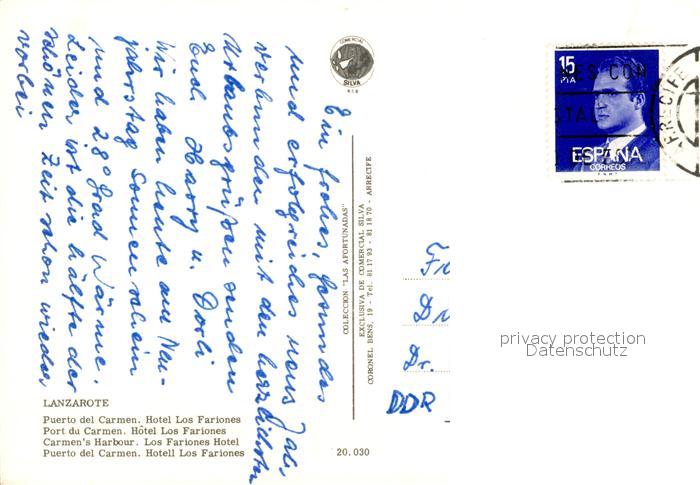 Ein frohes, gesundes
und erfolgreiches neues Jahr,
verbunden mit den herzlichsten
Urlaubsgrüßen senden
Euch Harry u. Dorli
Wir haben heute am Neu-
jahrstag Sonnenschein
und 28° Grad Wärme.
Leider ist die hälfte der
schönen Zeit schon wieder
vorbei
COMERCIAL
SILVA
LANZAROTE
Puerto del Carmen. Hotel Los Fariones
Port du Carmen. Hôtel Los Fariones
Carmen's Harbour. Los Fariones Hotel
Puerto del Carmen. Hotell Los Fariones
20.030
COLECCION "LAS AFORTUNADAS"
EXCLUSIVA DE COMERCIAL SILVA
CORONEL BENS, 19 - Tel. 81 17 93 - 81 18 70 - ARRECIFE
15
PTA
ESPAÑA
CORREOS
ARRECIFE
Dr.
DDR
privacy protection
Datenschutz